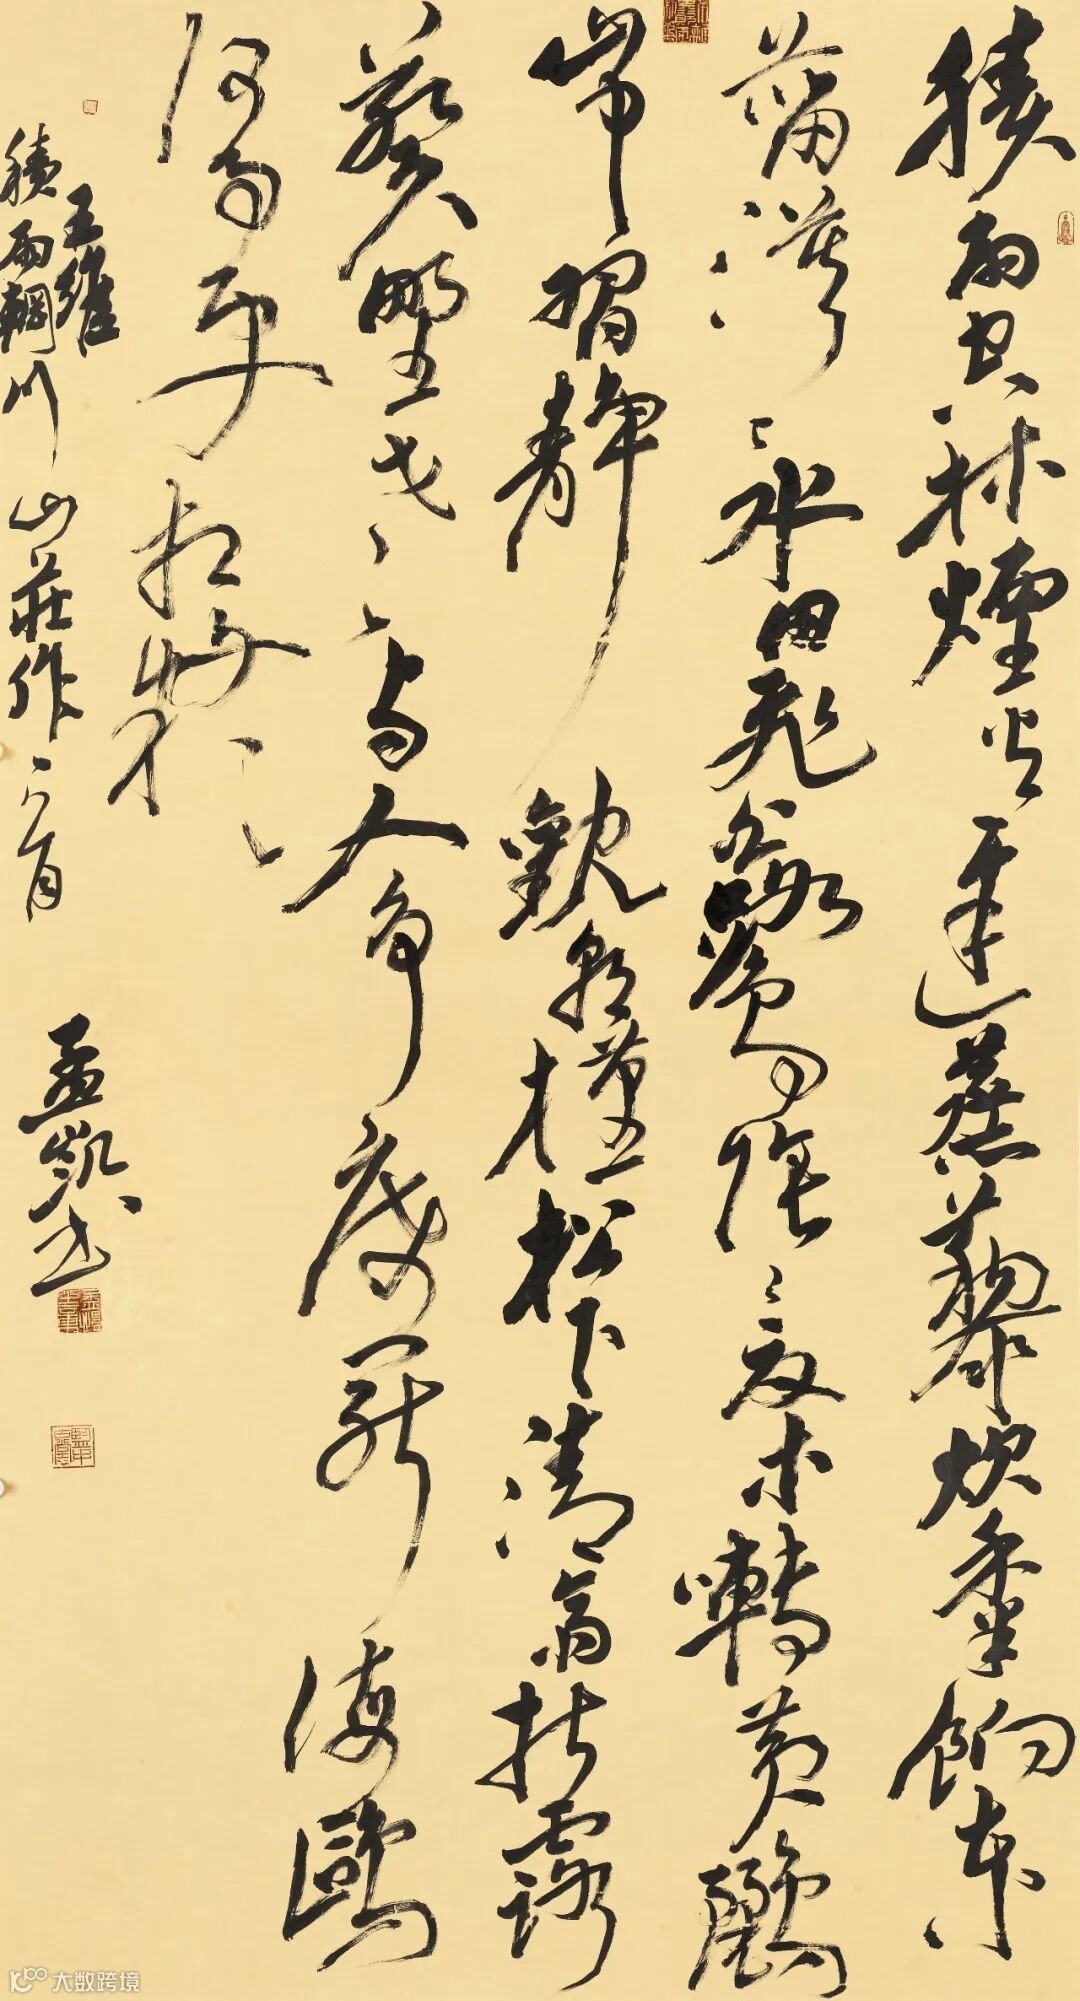 積雨空林煙火遲蒸藜炊黍餉東
菑漠漠水田飛白鷺陰陰夏木囀黃鸝
山中習靜觀朝槿松下清齋折露
葵野老與人爭席罷海鷗
何事更相疑
王維
積雨輞川山莊作
孟凱书
大数跨境